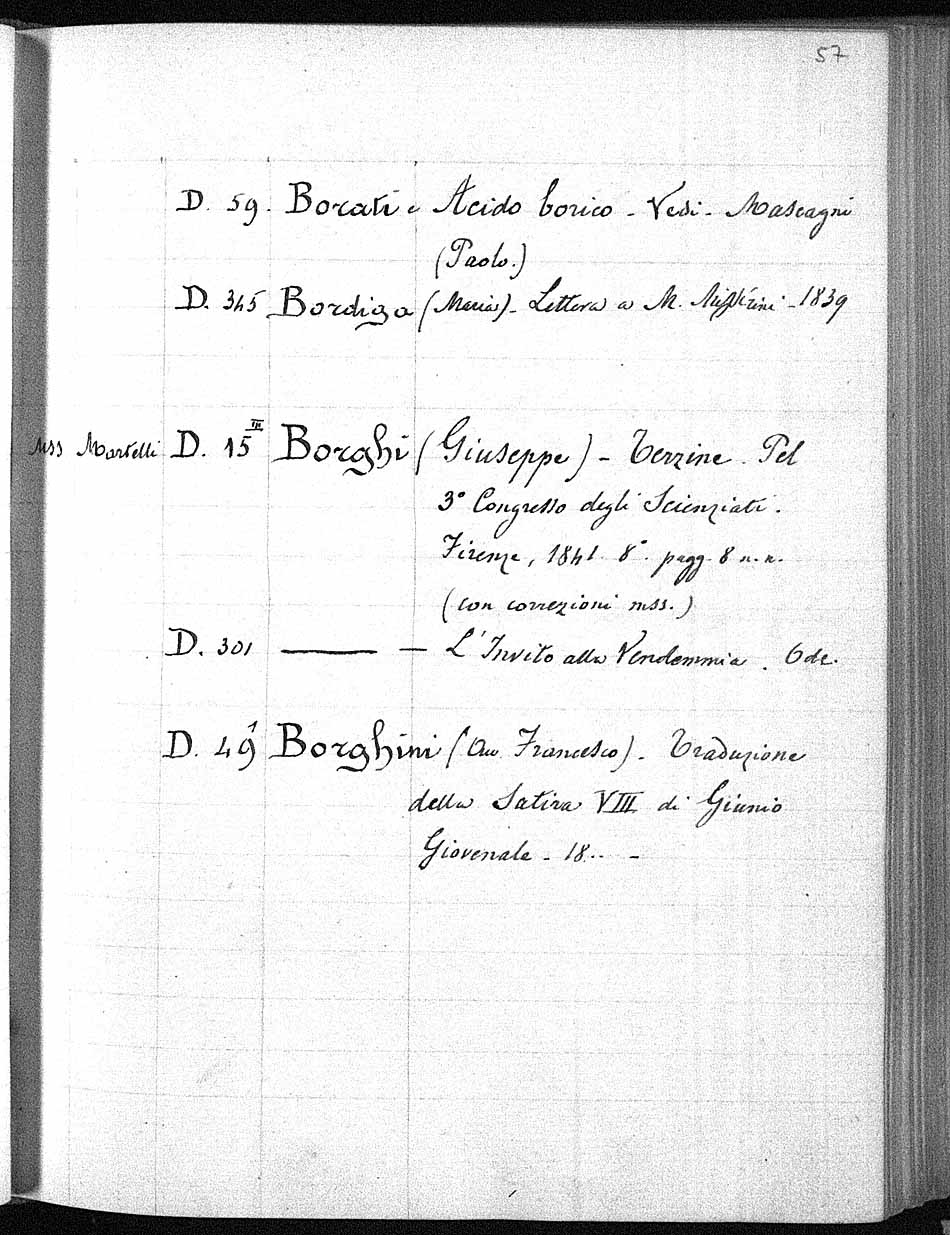 57
D. 59. Borati e Acido borico - Vedi - Mascagni
(Paolo.)
D. 345 Bordiga (Maria) - Lettera a M. - 1839
Mss Martelli D. 15 III Borghi (Giuseppe) - Terzine. Pel
3° Congresso degli Scienziati.
Firenze, 1841 8°. pagg. 8 n. n.
(con correzioni mss.)
D. 301 ——— — L'Invito alla Vendemmia. Ode.
D. 49 1 Borghini (Avv. Francesco). - Traduzione
della Satira VIII di Giunio
Giovenale - 18.. -